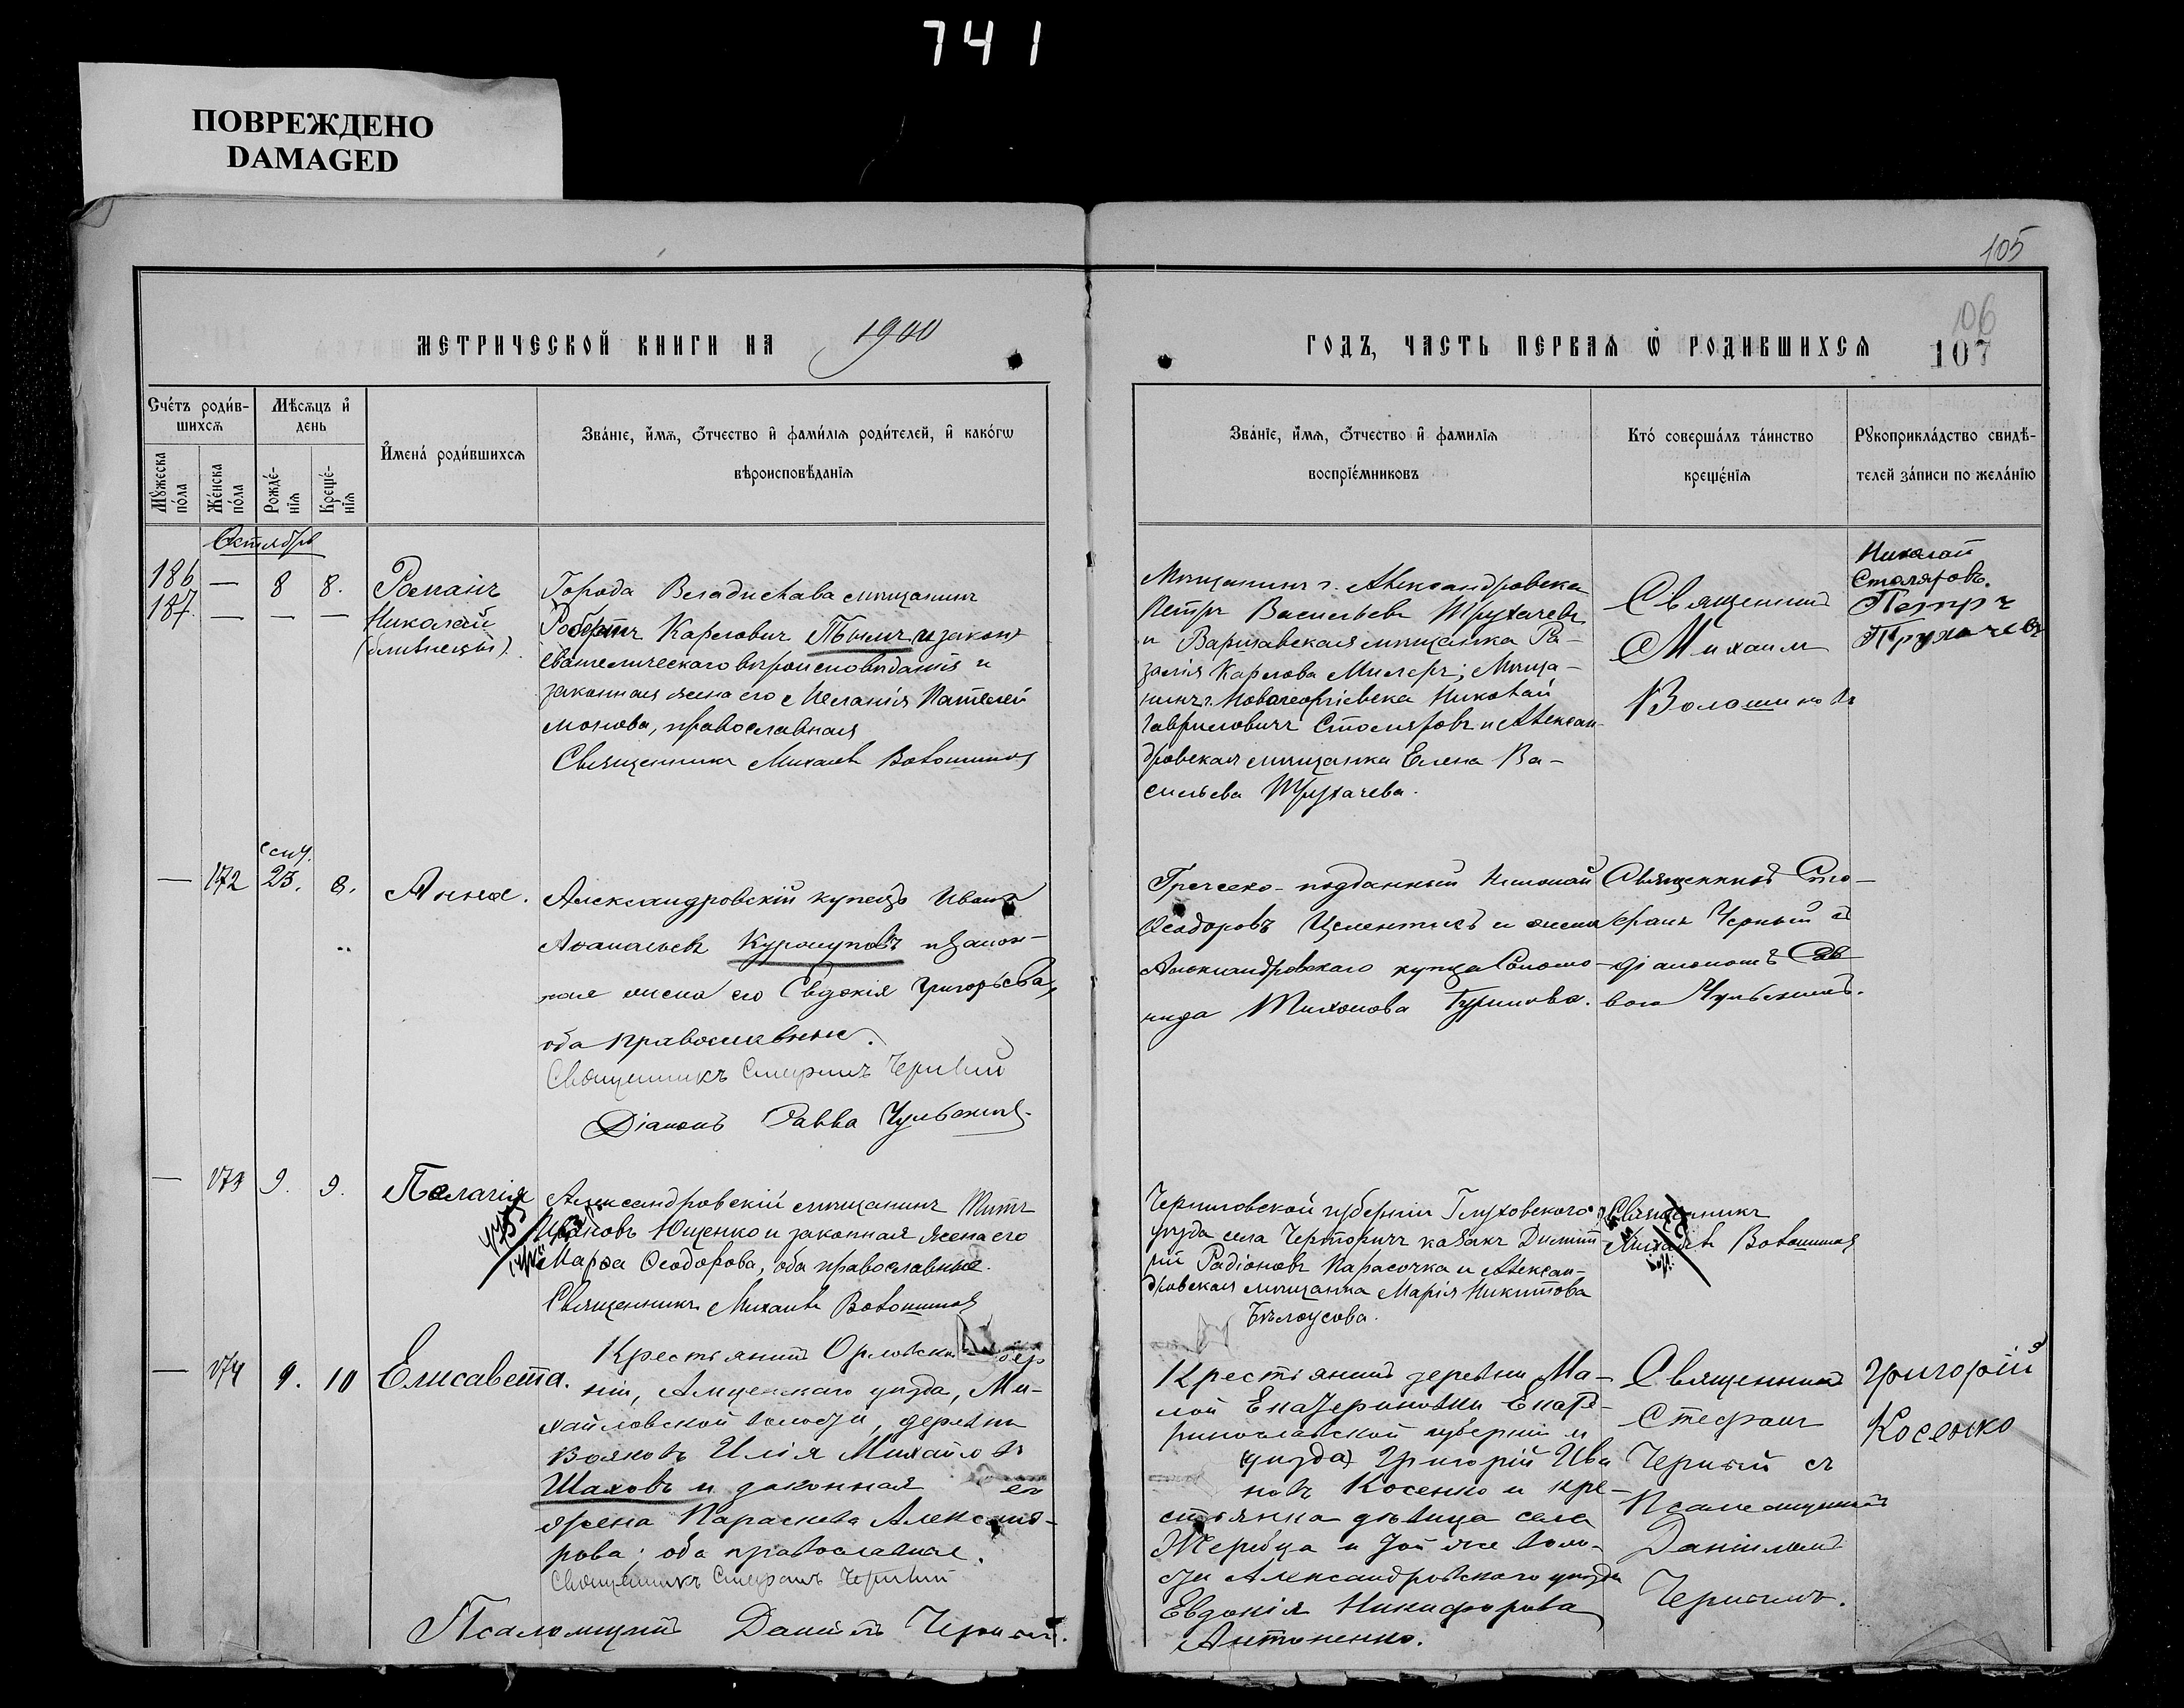 741
ПОВРЕЖДЕНО
DAMAGED
105
106
107
МЕТРИЧЕСКОЙ КНИГИ НА 1900
ГОДЪ, ЧАСТЬ ПЕРВАѦ Ѡ РОДИВШИХСѦ
Сче́тъ роди́в-
шихсѧ
Мѣсѧцъ и҆
день
Мꙋ́жеска
по́ла
Же́нска
по́ла
Рожде́-
нїѧ
Креще́-
нїѧ
И҆мена́ роди́вшихсѧ
Зва́нїе, и҆́мѧ, ѻ҆́тчество и҆ фами́лїѧ роди́телей, и҆ како́гѡ
вѣроисповѣ́данїѧ
Зва́нїе, и҆́мѧ, ѻ҆́тчество и҆ фами́лїѧ
воспрїе́мниковъ
Кто́ соверша́лъ та́инство
креще́нїѧ
Рꙋкоприкла́дство свидѣ́-
телей за́писи по жела́нїю
Октябрь
186 — 8 8. Романъ
187. — — — Николай
(близнецы).
Города Владислава мѣщанинъ
Робертъ Карловичъ и закон
вѣроисповѣданія и
законная жена его Меланія Пателей
монова, православная
Священникъ Михаилъ Волошиновъ
Мѣщанинъ г. Александровска
Петръ Васильевъ Трухачевъ
и Варшавская мѣщанка Ро-
залія Карлова Милеръ; Мѣща-
нинъ г. Новогеоргіевска Николай
Гавриловичъ Столяровъ и Алексан-
дровская мѣщанка Елена Ва-
сильева Трухачева.
Священникъ
Михаилъ
Волошиновъ
Николай
Столяровъ.
Петръ
Трухачевъ
— 172 сент. 23. 8. Анна.
Александровскій купецъ Иванъ
Аѳанасьевъ и закон-
ная жена его Евдокія Григорьева,
оба православные.
Священникъ Стефанъ Черный
Діаконъ Савва
Греческо-подданный Николай
Ѳеодоровъ и жена
Александровскаго купца Соломо-
нида Тихонова
Священникъ Сте-
фанъ Черный съ
діакономъ Сав-
вою
— 173 9. 9. Пелагія
Александровскій мѣщанинъ Титъ
Ивановъ Ющенко и законная жена его
Марѳа Ѳеодорова, оба православные.
Священникъ Михаилъ Волошиновъ
Черниговской губерніи Глуховского
уѣзда села Черторичъ казакъ Димит-
рій Радіоновъ Парасочка и Алексан-
дровская мѣщанка Марія Никитова
Бѣлоусова.
Священникъ
Михаилъ Волошиновъ
— 174 9. 10 Елисавета.
Крестьянинъ Орловской губер
ніи, Амценскаго уѣзда, Ми-
хайловской волости, деревни
Илія Михайловъ
Шаховъ и законная его
жена Параскева Александ-
рова; оба православные.
Священникъ Стефанъ Черный
Псаломщикъ Даніилъ Черный.
Крестьянинъ деревни Ма-
лой Екатериновки Екате-
ринославской губерніи и
уѣзда) Григорій Ива
новъ Косенко и кре-
стьянка дѣвица села
Жеребца и той же воло-
сти Александровскаго уѣзда
Евдокія Никифорова
Антоненко.
Священникъ
Стефанъ
Черный съ
Псаломщикомъ
Даніиломъ
Чернымъ.
Григорій
Косенко